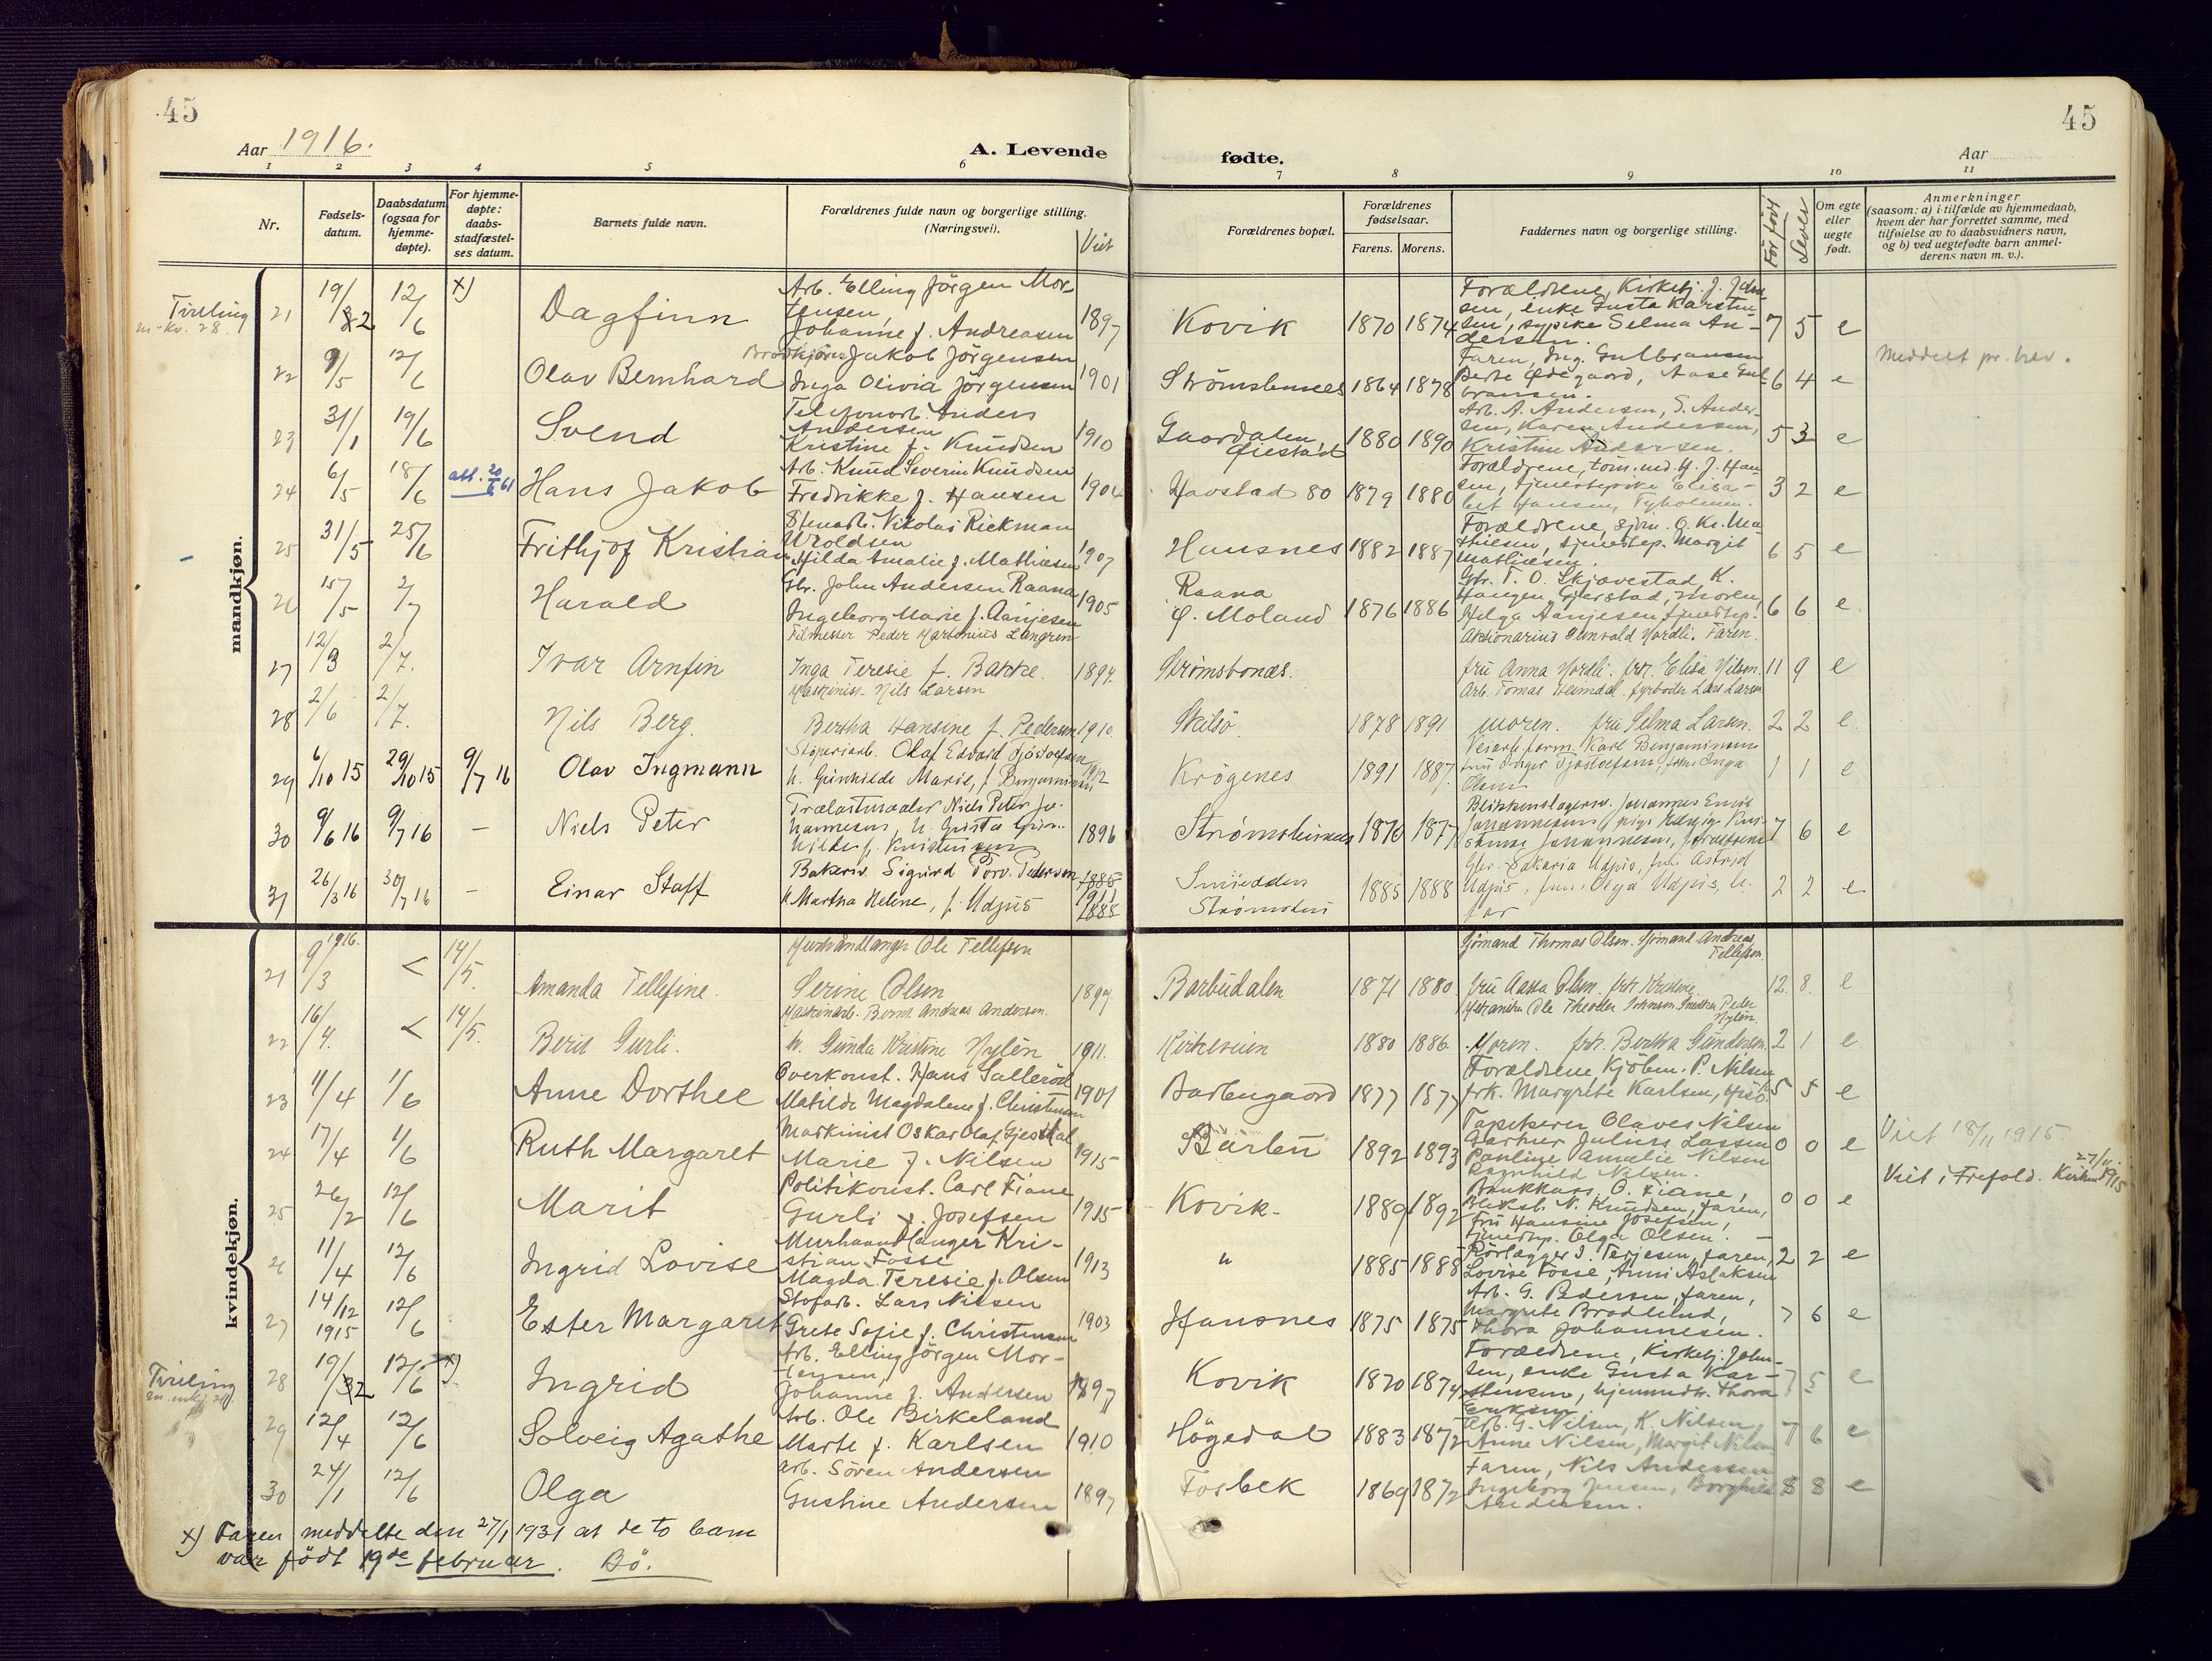 45
45
Aar 1916.
A. Levende
fødte.
Aar
1 2 3 4 5 6 7 8 9 10 11
Nr.
Fødsels-
datum.
Daabsdatum
(ogsaa for
hjemme-
døpte).
For hjemme-
døpte:
daabs-
stadfæstel-
ses datum.
Barnets fulde navn.
Forældrenes fulde navn og borgerlige stilling.
(Næringsvei).
Viet
Forældrenes bopæl.
Forældrenes
fødselsaar.
Farens. Morens.
Faddernes navn og borgerlige stilling.
Før født
Lever
Om egte
eller
uegte
født.
Anmerkninger
(saasom: a) i tilfælde av hjemmedaab,
hvem der har forrettet samme, med
tilføielse av to daabsvidners navn,
og b) ved uegtefødte barn anmel-
derens navn m. v.).
mandkjøn.
Tvilling
m. kv. 28.
21 19/2 12/6 x) Dagfinn
Arb. Elling Jörgen Mor-
tensen,
Johanne f. Andreasen 1897
Kovik 1870 1874
Forældrene, Kirketj. J. John-
sen, enke Gusta Karsten-
sen, sypike Selma An-
dersen. 7 5 e
22 9/5 12/6 Olav Bernhard
Brødkjører Jakob Jörgensen
Inga Olivia Jörgensen 1901
Strömsbusnes 1864 1878
Faren, Ing. Gulbransen
Berte Ødegaard, Aase Gul-
bransen. 6 4 e
Meddelt pr. brev.
23 31/1 19/6 Svend
Telefonarb. Anders
Andersen
Kristine f. Knudsen 1910
Gaardalen,
Øiestad 1880 1890
Arb. A. Andersen, S. Ander-
sen, Karen Andersen,
Kristine Andersen. 5 3 e
24 6/5 18/6 att. 20/6 61 Hans Jakob
Arb. Knud Severin Knudsen
Fredrikke f. Hansen 1904
Havstad 80 1879 1880
Forældrene, töm. md. H. J. Han-
sen, tjenestepike Elisa-
bet Hansen, Tyholmen. 3 2 e
25 31/5 25/6 Frithjof Kristian
Stenarb. Nikolai Rickman
Wroldsen
Hilda Amalie f. Mathiesen 1907
Hausnes 1882 1887
Forældrene, sjöm. O. Kr. Ma-
thiesen, tjenestep. Margit
Mathiesen. 6 5 e
26 15/5 2/7 Harald
Gbr. John Andersen Raana
Ingeborg Marie f. Aanjesen 1905
Raana
Ø. Moland 1876 1886
Gbr. T. O. Skjævestad, K.
Haugen, Gjerstad, moren,
Helga Aanjesen tjenestep. 6 6 e
27 12/3 2/7. Ivar Arnfin
Filmesser Peder Martinius Langren
Inga Teresie f. Bakke. 1894.
Strømsbonæs.
Aktionarius Gunvald Nordli. Faren.
fru Anna Nordli. frk. Elisa Nilsen. 11 9 e
28 2/6 2/7. Nils Berg.
Maskinist Nils Larsen
Bertha Hansine f. Pedersen 1910.
Skilsö. 1878 1891
Arb. Tomas Heimdal. fyrböter Lars Larsen
moren. fru Selma Larsen. 2 2 e.
29 6/10 15 29/10 15 9/7 16 Olav Ingmann
Støperiarb. Olaf Edvard Tjöstolfsen
h. Gunhilde Marie, f. Benjaminsen 1912
Krögenes 1891 1887.
Veiarb. form. Karl Benjaminsen
fru Inger Tjöstolfsen, frk. Inga
Olsen 1 1 e
30 9/6 16 9/7 16 – Niels Peter
Trælastmaaler Niels Peter Jo-
hannesen, h. Grista Gun-
hilde f. Kristensen 1896
Strømsbusnes 1870 1877
Blikkenslagersv. Johannes Emil
Johannesen, pige Hedvig Kris-
stense Johannesen, 7 6 e
31 26/3 16 30/7 16 – Einar Staff
Bakersv. Sigurd Torv. Pedersen 1885
h. Martha Heline, f. Udjus 1911
1888
Smiedden
Strømsbu 1885 1888
Gbr. Zakaria Udjus, fru Astrid
Udjus, fru Olga Udjus, b.
far 2 2 e
kvindekjøn.
21 9/3 1916. < 14/5. Amanda Tellefine.
Murhåndlanger Ole Tellefsen
Serine Olsen 1897
Barbudalen 1871 1880
Sjömand Thomas Olsen. Sjömand Andreas
Tellefsen.
fru Aasta Olsen. frk. Kristine 12. 8. e
22 16/4. < 14/5. Berit Gurli.
Maskinarb. Bernt Andreas Andersen.
h. Gunda Kristine Nylén 1911.
Kirkeveien 1880 1886.
Mekaniker Ole Theodor Johnsen. Snedker Peder
Nylén.
Moren. frk. Bertha Gundersen. 2 1 e
23 11/4 1/6 Anne Dorthee
Overkonst. Hans Salleröd
Matilde Magdalene f. Christensen 1901
Barbugaard 1877 1877
Forældrene Kjöbm. P. Nilsen
frk. Margrete Karlsen, Hisö. 5 5 e
24 17/4 1/6 Ruth Margaret
Maskinist Oskar Olaf Gjesdal
Marie f. Nilsen 1915
Barbu 1892 1893
Tapetserer Olaves Nilsen
Gartner Julius Larsen
Pauline Amalie Nilsen
Ragnhild Nilsen. 0 0 e
Viet 18/11 1915
25 26/2 12/6 Marit
Politikonst. Carl Fiane
Gurli f. Josefsen 1915
Kovik. 1889 1892
Bankkass. O. Fiane,
Bliksl. N. Knudsen, faren,
Fru Hansine Josefsen,
tjenestep. Olga Olsen. 0 0 e
Viet i Frefold. Kirke 27/11 1915
26 11/4 12/6 Ingrid Lovise
Murhaandlanger Kri-
stian Fosse
Magda Teresie f. Olsen 1913
" 1885 1888
Rörlægger I. Terjesen, faren,
Lovise Fosse, Anni Aslaksen 2 2 e
27 14/12 1915 12/6 Ester Margaret
Stofarb. Lars Nilsen
Grete Sofie f. Christensen 1903
Hausnes 1875 1875
Arb. G. Pedersen, faren,
Margrete Brodelund,
Thora Johannesen. 7 6 e
Tvilling
m. mkj. 21.
28 19/2 12/6 x) Ingrid
Arb. Elling Jörgen Mor-
tensen,
Johanne f. Andersen 1897
Kovik 1870 1874
Forældrene, Kirketj. John-
sen, enke Gusta Kar-
stensen, hjemmedtr. Thora
Eriksen. 7 5 e
29 12/4 12/6 Solveig Agathe
Arb. Ole Birkeland
Marte f. Karlsen 1910
Högedal 1883 1872
Arb. G. Nilsen, K. Nilsen,
Anne Nilsen, Margit Nilsen 7 6 e
30 24/1 12/6 Olga
Arb. Sören Andersen
Gustine Andersen 1897
Fosbek 1869 1872
Faren, Nils Andersen
Ingeborg Jensen, Borghild
Andersen. 8 8 e
x) Faren meddelte den 27/1 1931 at de to barn
var født 19de februar. Bö.